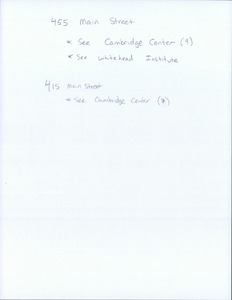 455 Main Street
* See Cambridge Center (9)
* See Whitehead Institute
415 Main Street
* See Cambridge Center